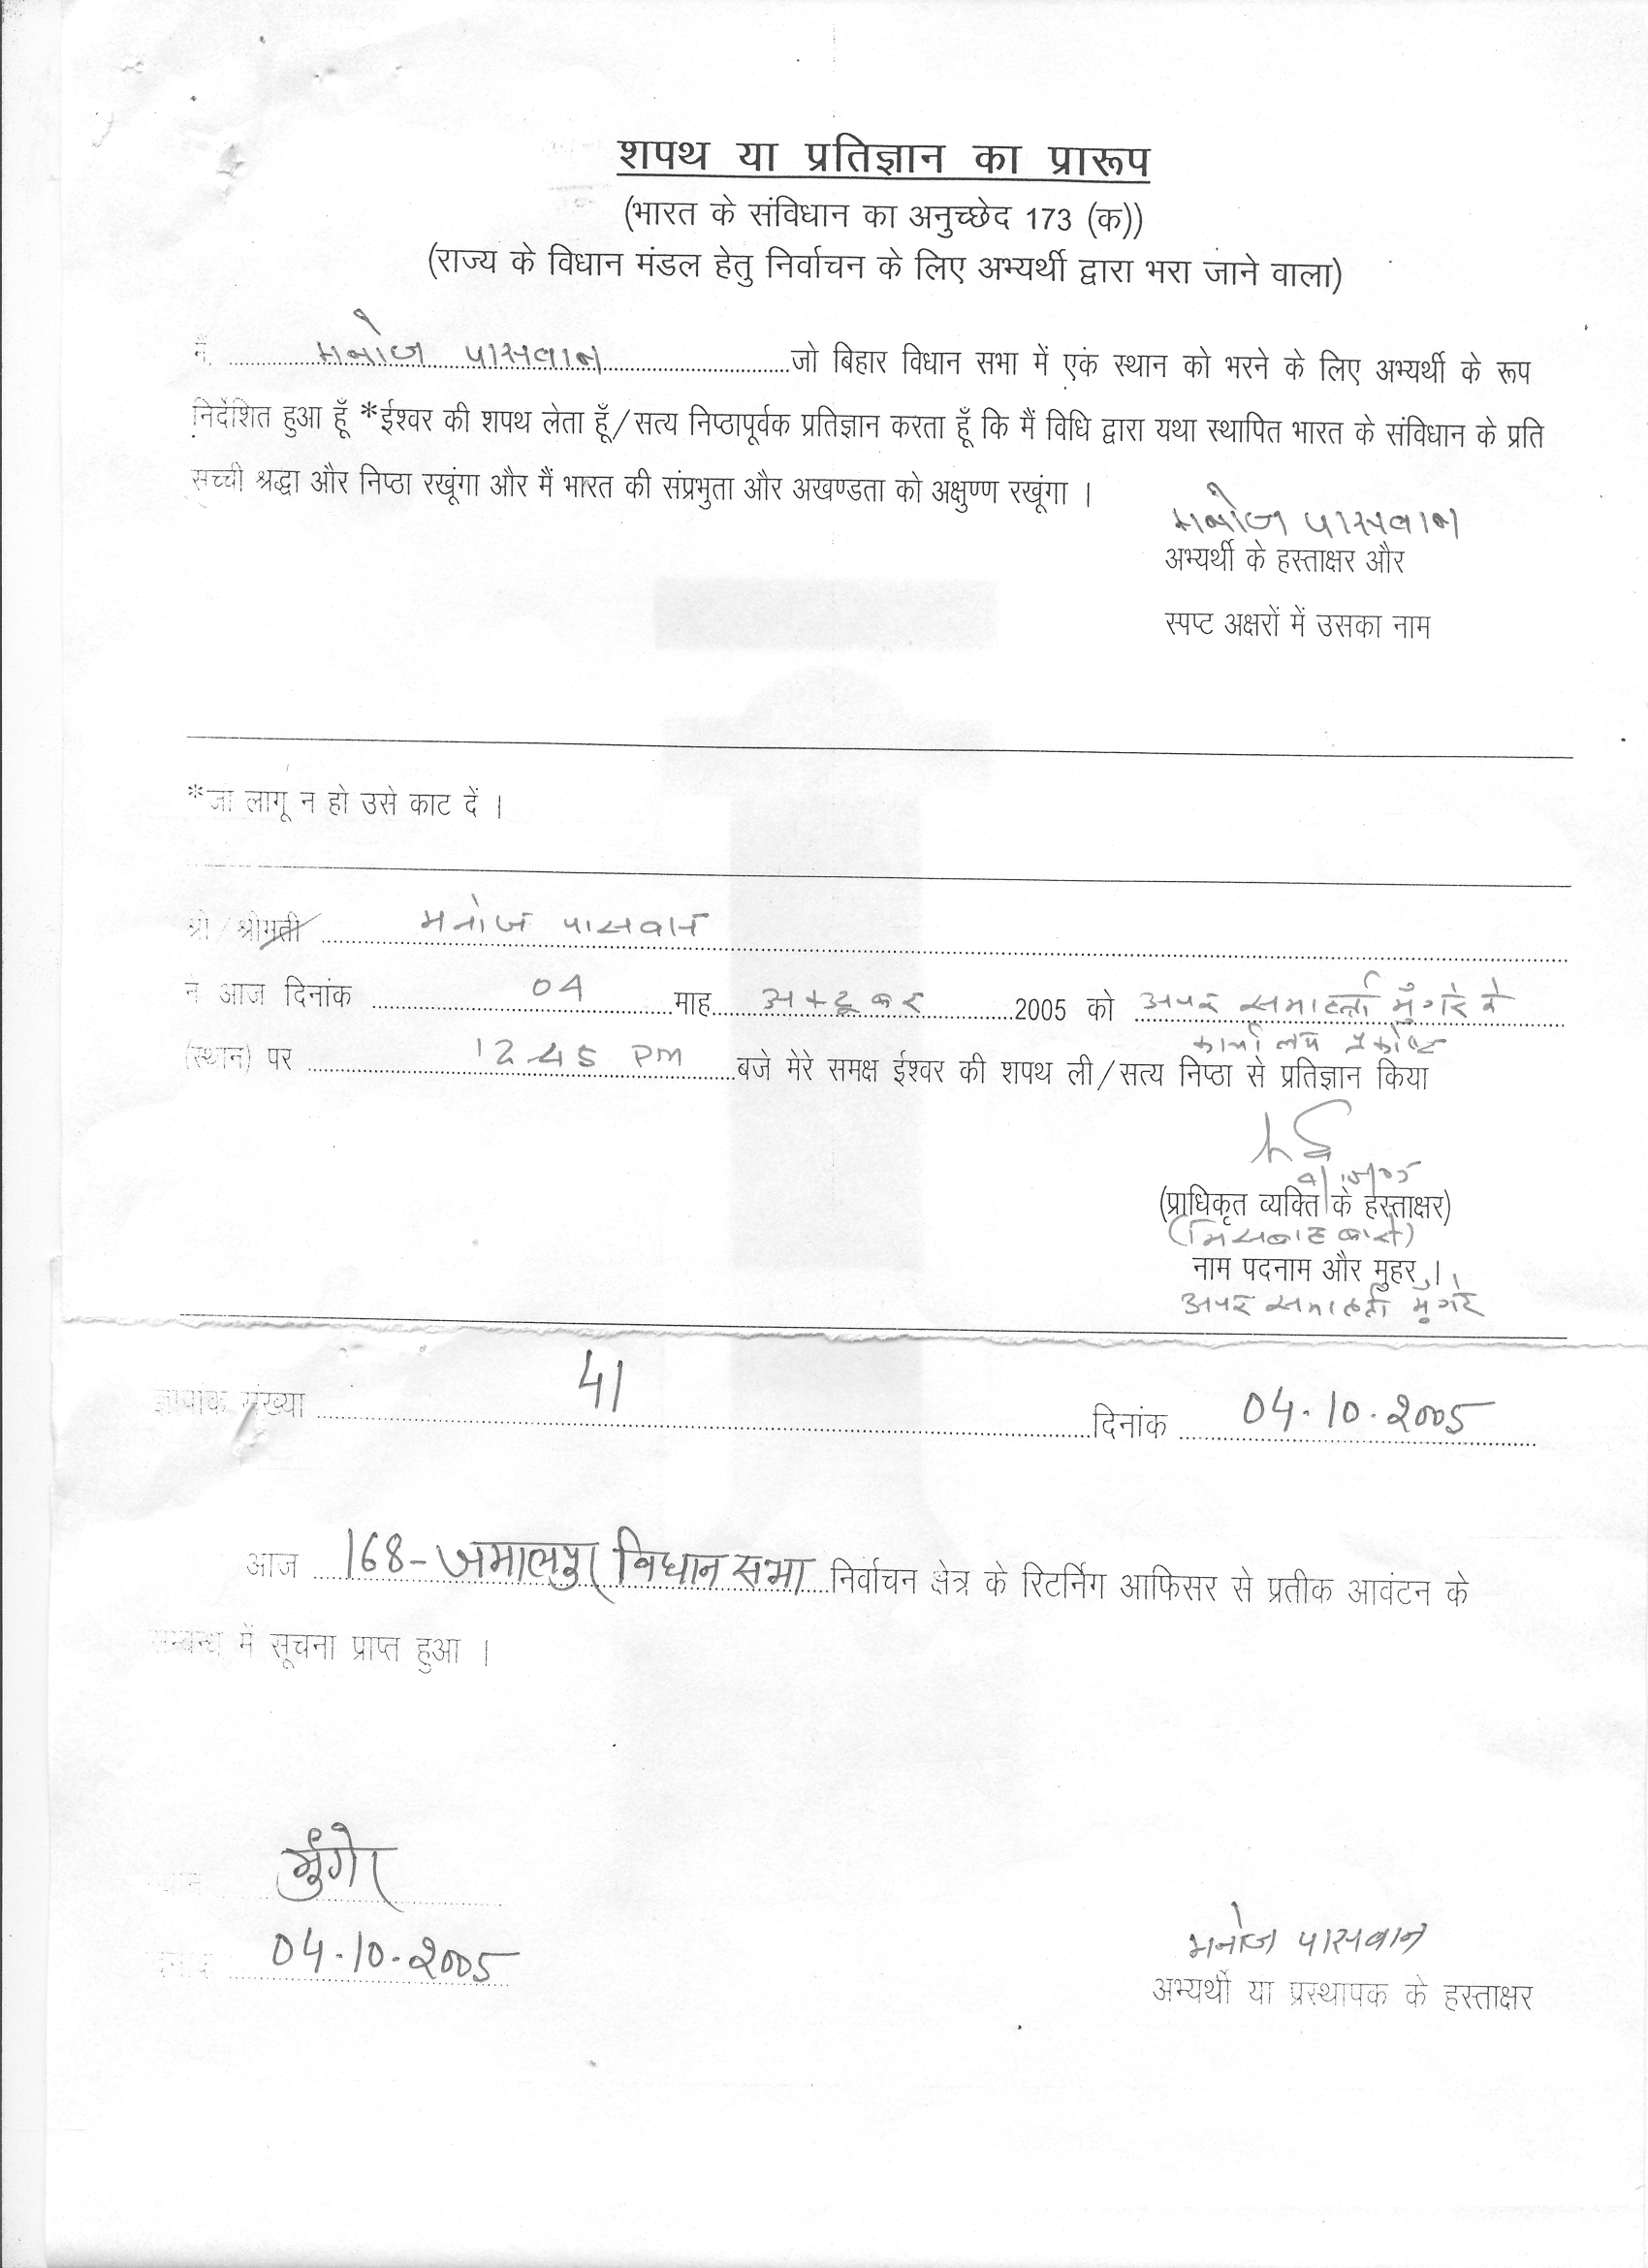 शपथ या प्रतिज्ञान का प्रारूप
(भारत के संविधान का अनुच्छेद 173 (क))
(राज्य के विधान मंडल हेतु निर्वाचन के लिए अभ्यर्थी द्वारा भरा जाने वाला)
मैं मनोज पासवान जो बिहार विधान सभा में एक स्थान को भरने के लिए अभ्यर्थी के रूप
निर्देशित हुआ हूँ *ईश्वर की शपथ लेता हूँ/सत्य निष्ठापूर्वक प्रतिज्ञान करता हूँ कि मैं विधि द्वारा यथा स्थापित भारत के संविधान के प्रति
सच्ची श्रद्धा और निष्ठा रखूंगा और मैं भारत की संप्रभुता और अखण्डता को अक्षुण्ण रखूंगा ।
मनोज पासवान
अभ्यर्थी के हस्ताक्षर और
स्पष्ट अक्षरों में उसका नाम
*जो लागू न हो उसे काट दें ।
श्री/श्रीमती मनोज पासवान
ने आज दिनांक 04 माह अक्टूबर 2005 को अपर समाहर्ता मुंगेर के
कार्यालय प्रकोष्ठ
(स्थान) पर 12.45 PM बजे मेरे समक्ष ईश्वर की शपथ ली/सत्य निष्ठा से प्रतिज्ञान किया
(प्राधिकृत व्यक्ति के हस्ताक्षर)
नाम पदनाम और मुहर ।
अपर समाहर्ता मुंगेर
ज्ञापांक संख्या 41 दिनांक 04.10.2005
आज 168-जमालपुर विधान सभा निर्वाचन क्षेत्र के रिटर्निंग आफिसर से प्रतीक आवंटन के
सम्बन्ध में सूचना प्राप्त हुआ ।
मुंगेर
04.10.2005
मनोज पासवान
अभ्यर्थी या प्रस्थापक के हस्ताक्षर